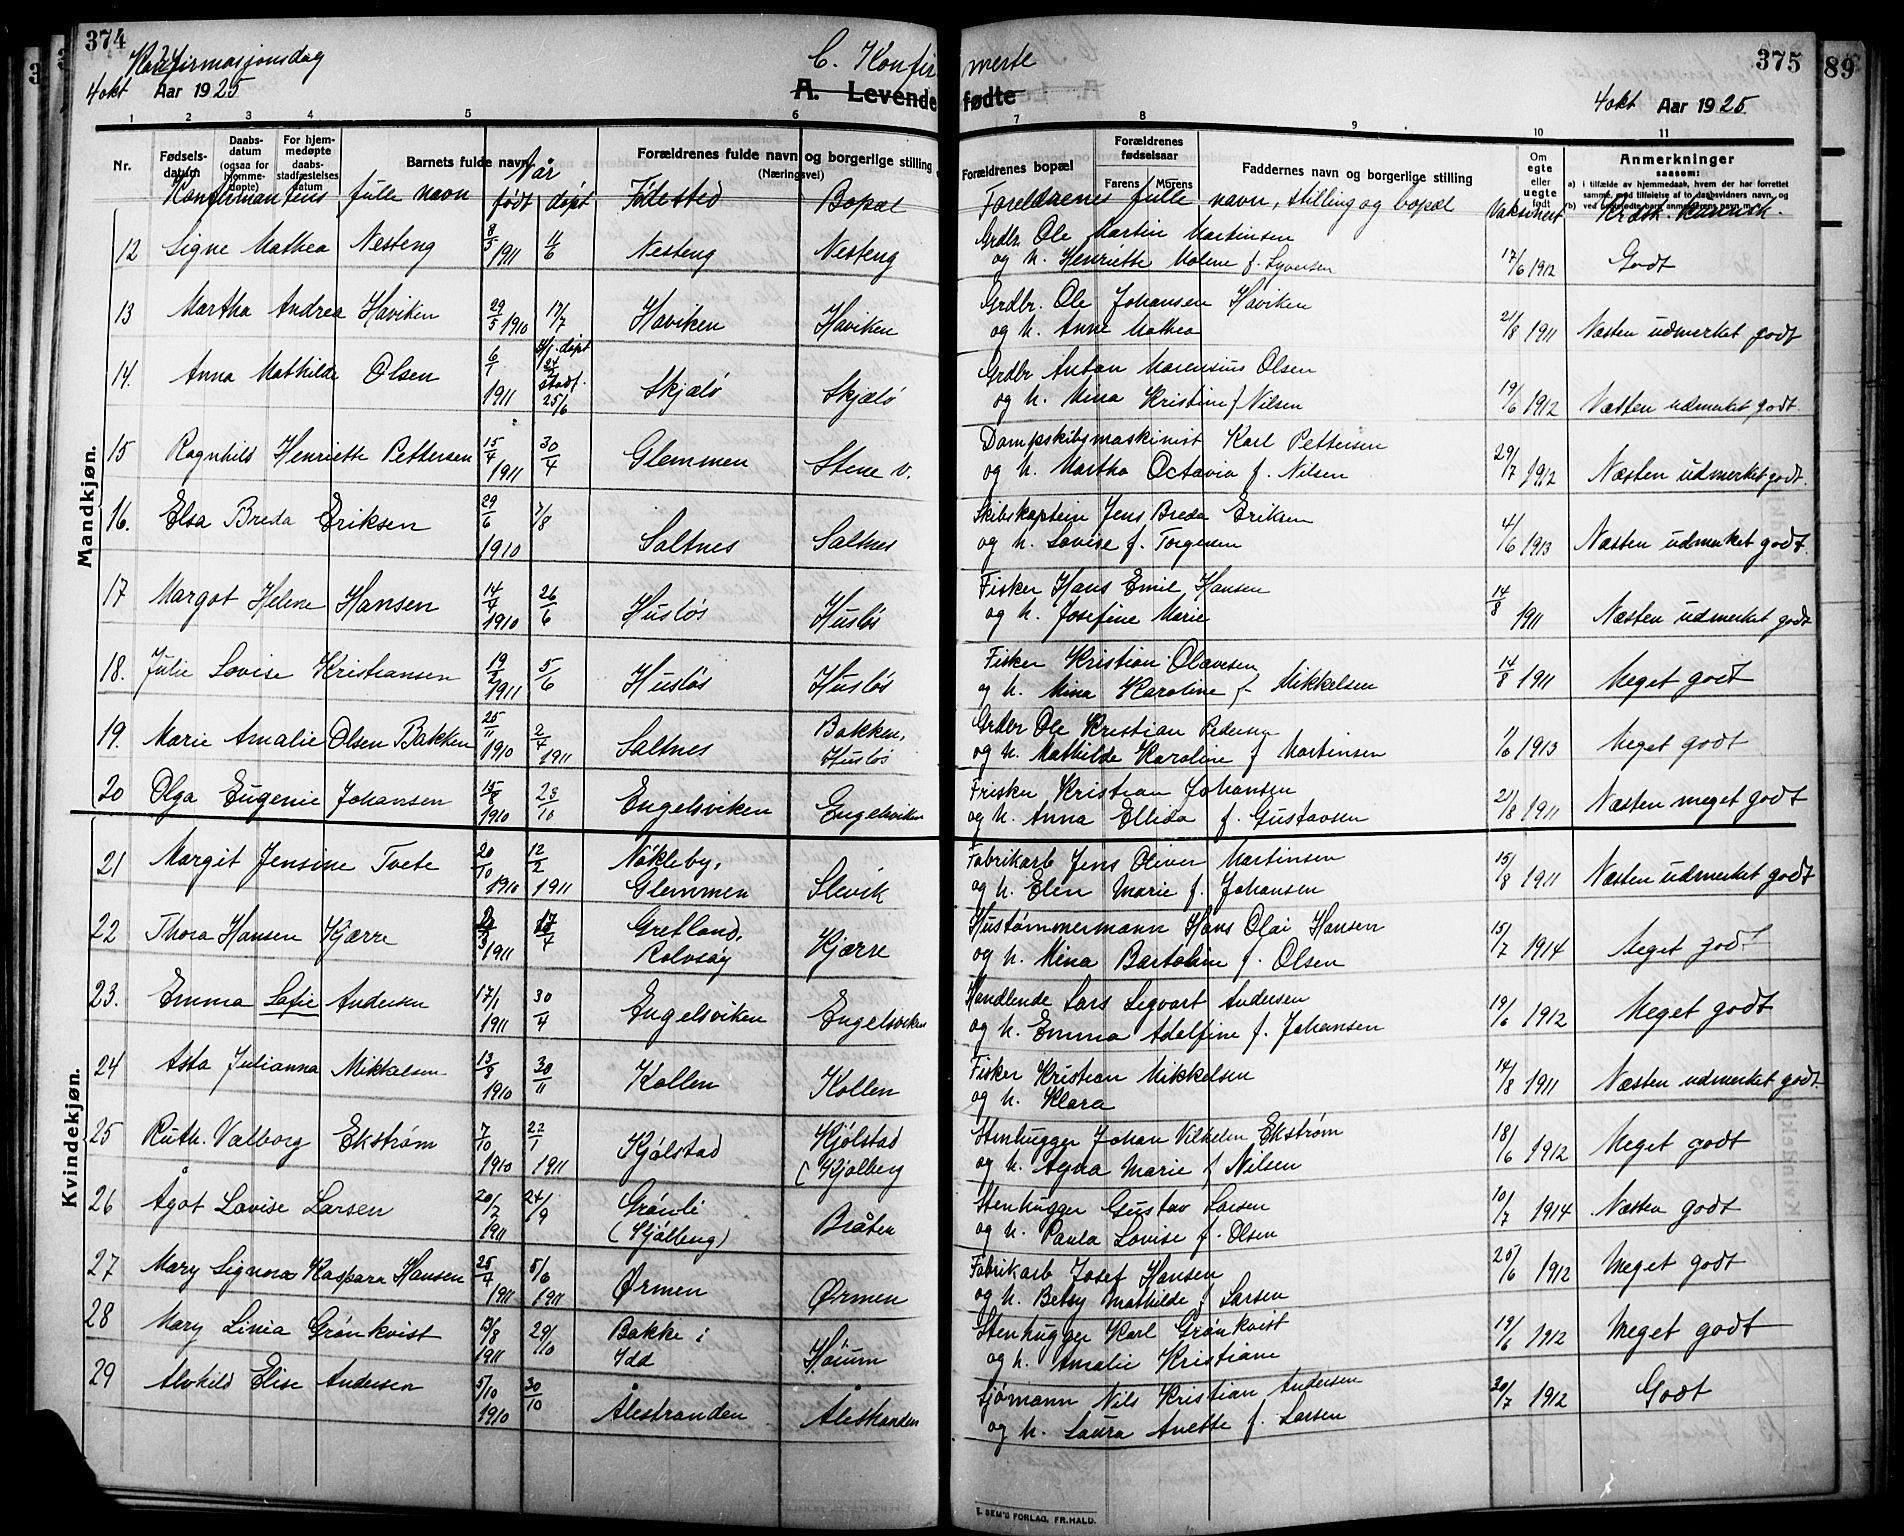 374
Konfirmasjonsdag
4 okt Aar 1925
C. Konfirmerte
A. Levendefødte
375
89
4 okt Aar 1925
1 2 3 4 5 6 7 8 9 10 11
Nr.
Fødselsdatum
Daabsdatum (ogsaa for hjemmedøpte)
For hjemmedøpte daabsstadfæstelses datum
Barnets fulde navn
Forældrenes fulde navn og borgerlige stilling (Næringsvei)
Forældrenes bopæl
Forældrenes fødselsaar
Farens Morens
Faddernes navn og borgerlige stilling
Om egte eller uegte født
Anmerkninger
saasom:
Konfirmantens fulle navn
Når født døpt
Fødested
Bopæl
Foreldrenes fulle navn, stilling og bopæl
Vaksinert
Mandkjøn.
12 Signe Mathea Nesteng 8/5 1911 11/6 Nesteng Nesteng
Grdbr. Ole Martin Martinsen
og h. Henriette Molene f. Syversen 17/6 1912 Godt
13 Martha Andrea Haviken 29/5 1910 17/7 Haviken Haviken
Grdbr. Ole Johansen Haviken
og h. Anne Mathea 21/8 1911 Næsten udmerket godt
14. Anna Mathilde Olsen 6/1 1911 døpt stadf. 25/6 Skjælø Skjælø
Grdbr Anton Marensius Olsen
og h. Mina Kristine f Nilsen 19/6 1912 Næsten udmerket godt
15 Ragnhild Henriette Pettersen 15/4 1911 30/4 Glemmen Stene v.
Dampskibsmaskinist Karl Pettersen
og h. Martha Octavia f. Nilsen 29/7 1912 Næsten udmerket godt.
16. Elsa Breda Eriksen 29/6 1910 7/8 Saltnes Saltnes
Skibskaptein Jens Breda Eriksen
og h. Lovise f. Torgersen 4/6 1913 Næsten udmerket godt.
17 Margot Helene Hansen 14/4 1910 26/6 Husløs Husløs
Fisker Hans Emil Hansen
og h. Josefine Marie 14/8 1911 Næsten udmerket godt
18. Julie Lovise Kristiansen 19/2 1911 5/6 Husløs Husløs
Fisker Kristian Olavesen
og h. Mina Karoline f. Mikkelsen 14/8 1911 Meget godt
19. Marie Amalie Olsen Bakken 25/11 1910 2/4 1911 Saltnes Bakken, Husløs
Grdbr Ole Kristian Pedersen
og h. Mathilde Karoline f Martinsen 1913 Meget godt
20 Olga Eugenie Johansen 1910 23/10 Engelsviken Engelsviken
Frisker Kristian Johansen
og h. Anna Ellida f. Gustavsen 21/8 1911 Næsten meget godt
Kvindekjøn.
21 Margit Jensine Tvete 20/10 1910 12/2 1911 Nøkleby, Glemmen Slevik
Fabrikarb Jens Oliver Martinsen
og h. Elen Marie f. Johansen 15/8 1911 Næsten udmerket godt
22 Thora Hansen Kjærre 1911 17/4 Gretland, Rolvsøy Kjærre
Hustømmermann Hans Olai Hansen
og h. Mina Bartoline f. Olsen 15/7 1914 Meget godt
23. Emma Sofie Andersen 17/1 1911 30/4 Engelsviken Engelsviken
Handlende Lars Segvart Andersen
og h. Emma Adolfine f. Johansen 19/6 1912 Meget godt
24 Asta Julianna Mikkelsen 13/8 1910 30/11 Kollen Kollen
Fisker Kristian Mikkelsen
og h. Klara 14/8 1911 Næsten udmerket godt.
25 Ruth. Valborg Ekstrøm 7/10 1910 22/1 1911 Kjølstad Kjølstad (Kjølberg
Stenhugger Johan Vilhelm Ekstrøm
og h. Agna Marie f Nilsen 18/6 1912 Meget godt
26 Ågot Lovise Larsen 20/2 1911 24/9 Grønli (Kjølberg) Bråten
Stenhugger Gustav Larsen
og h. Paula Lovise f. Olsen 10/7 1914 Næsten godt
27 Mary Signora Kaspara Hansen 25/4 1911 5/6 1911 Ørmen Ørmen
Fabrikarb Josef Hansen
og h. Betsy Mathilde f Larsen 25/6 1912 Meget godt
28 Mary Linia Grønkvist 13/8 1911 29/10 Bakke i Idd Høium
Stenhugger Karl Grønkvist
og h. Amalie Kristiane 19/6 1912 Meget godt
29 Alvhild Elise Andersen 5/10 1910 30/10 Ålestranden Ålestranden
Sjømann Nils Kristian Andersen
og h. Laura Anette f. Larsen 30/7 1912 Godt
E. SEM'S FORLAG, FR.HALD.